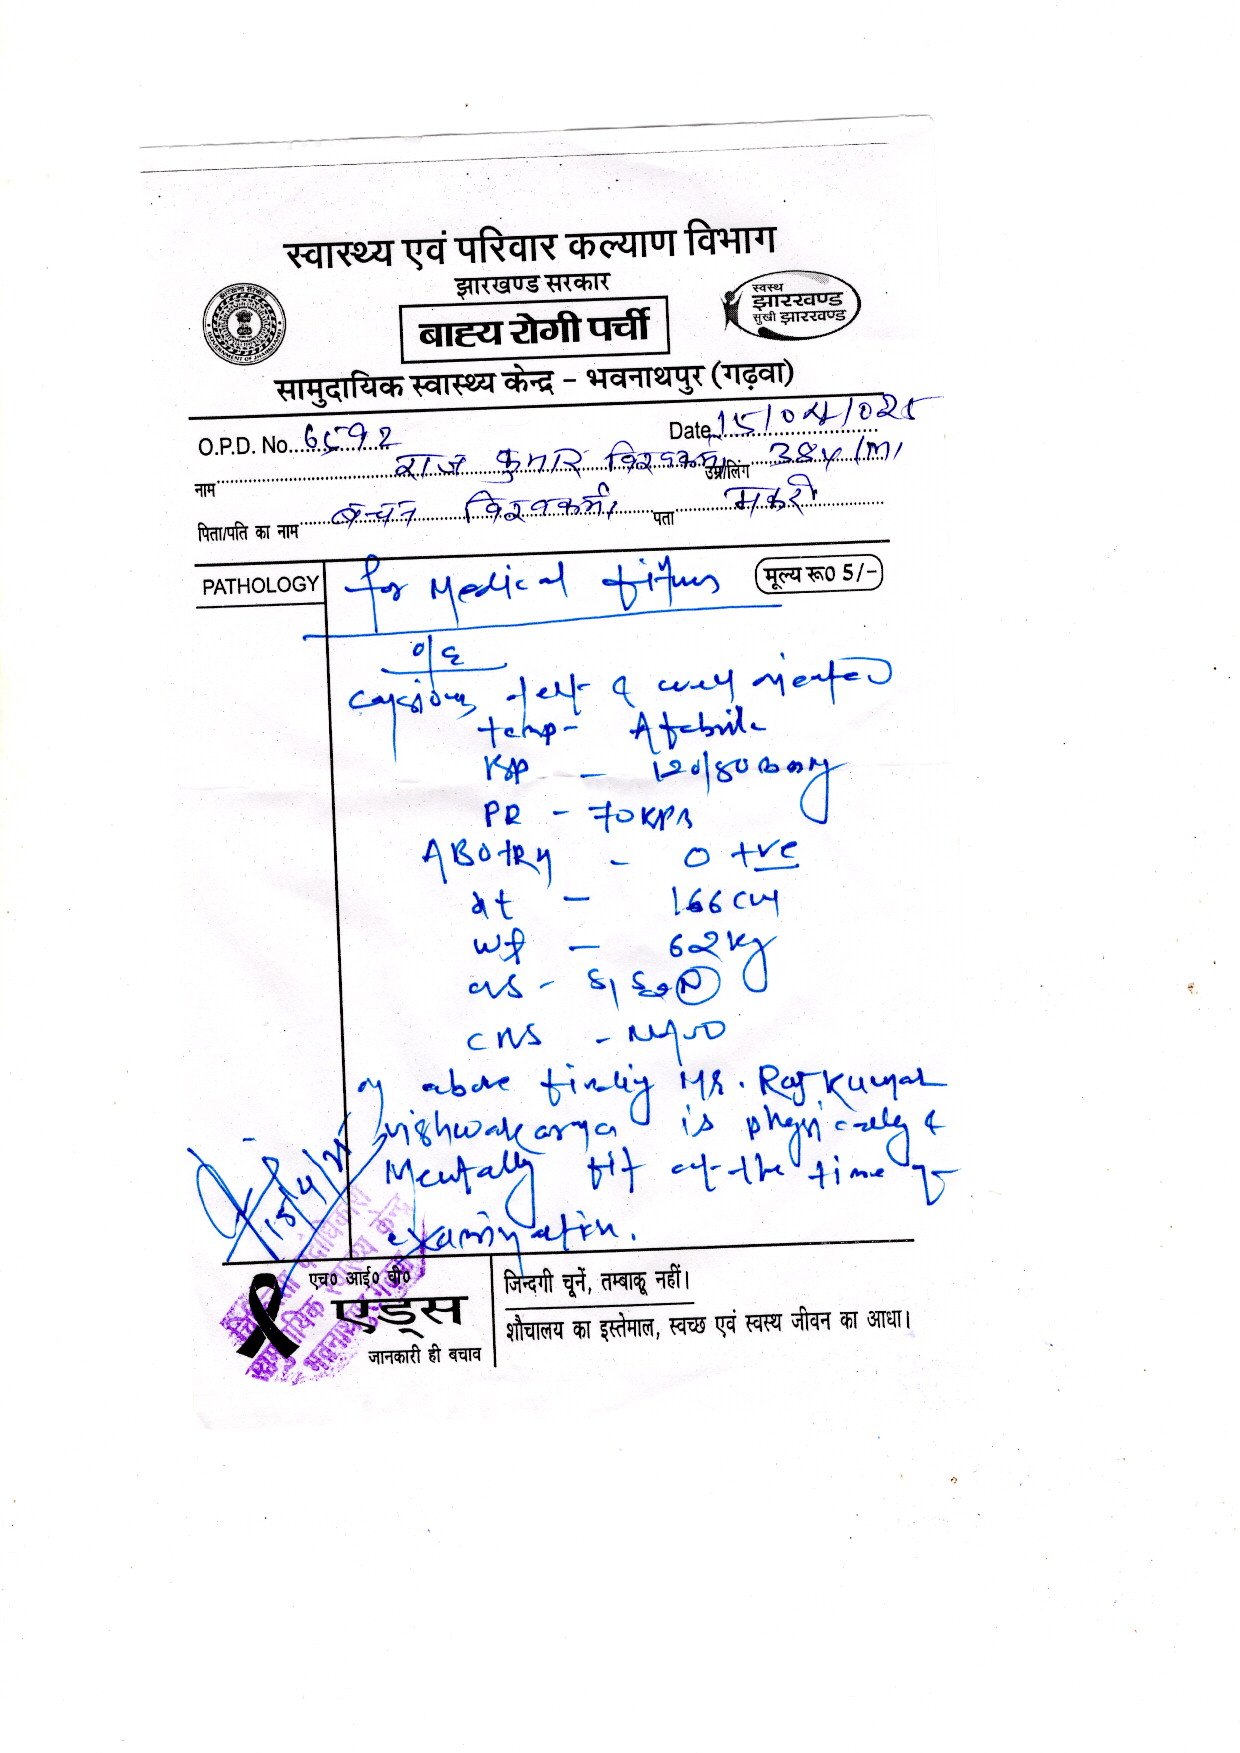 स्वास्थ्य एवं परिवार कल्याण विभाग
झारखण्ड सरकार
बाह्य रोगी पर्ची
स्वस्थ
झारखण्ड
सुखी झारखण्ड
सामुदायिक स्वास्थ्य केन्द्र - भवनाथपुर (गढ़वा)
O.P.D. No. 6592 Date 15/04/025
नाम राज कुमार विश्वकर्मा उम्र/लिंग 38y/M
पिता/पति का नाम बच्चन विश्वकर्मा पता मकरी
PATHOLOGY for Medical fitness मूल्य रू0 5/-
O/E
& well oriented
Temp - Afebrile
BP - 120/80
PR - 70
ABO+RH - O +ve
Ht - 166 cm
Wt - 62 kg
CVS - S1 S2 N
CNS - NAD
above finding Mr. Raj Kumar
Vishwakarma is physically &
Mentally fit at the time of
examination.
15/4/25
एच० आई० वी०
एड्स
जानकारी ही बचाव
जिन्दगी चूनें, तम्बाकू नहीं।
शौचालय का इस्तेमाल, स्वच्छ एवं स्वस्थ जीवन का आधा।